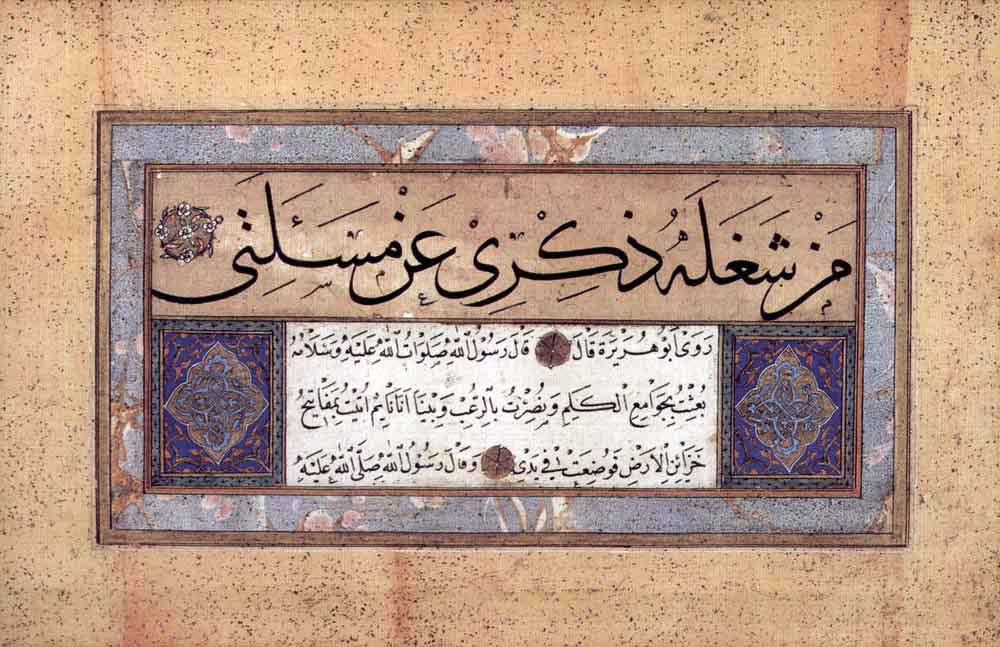 مَنْ شَغَلَهُ ذِكْرِى عَنْ مَسْئَلَتِى
رَوٰى اَبُو هُرَيْرَةَ قَالَ قَالَ رَسُولُ اللّٰهِ صَلَوَاتُ اللّٰهِ عَلَيْهِ وَسَلَامُهُ
بُعِثْتُ بِجَوَامِعِ الْكَلِمِ وَنُصِرْتُ بِالرُّعْبِ وَبَيْنَا اَنَا نَائِمٌ اُتِيتُ بِمَفَاتِيحِ
خَزَائِنِ الْاَرْضِ فَوُضِعَتْ فِى يَدِى وَقَالَ رَسُولُ اللّٰهِ صَلَّى اللّٰهُ عَلَيْهِ